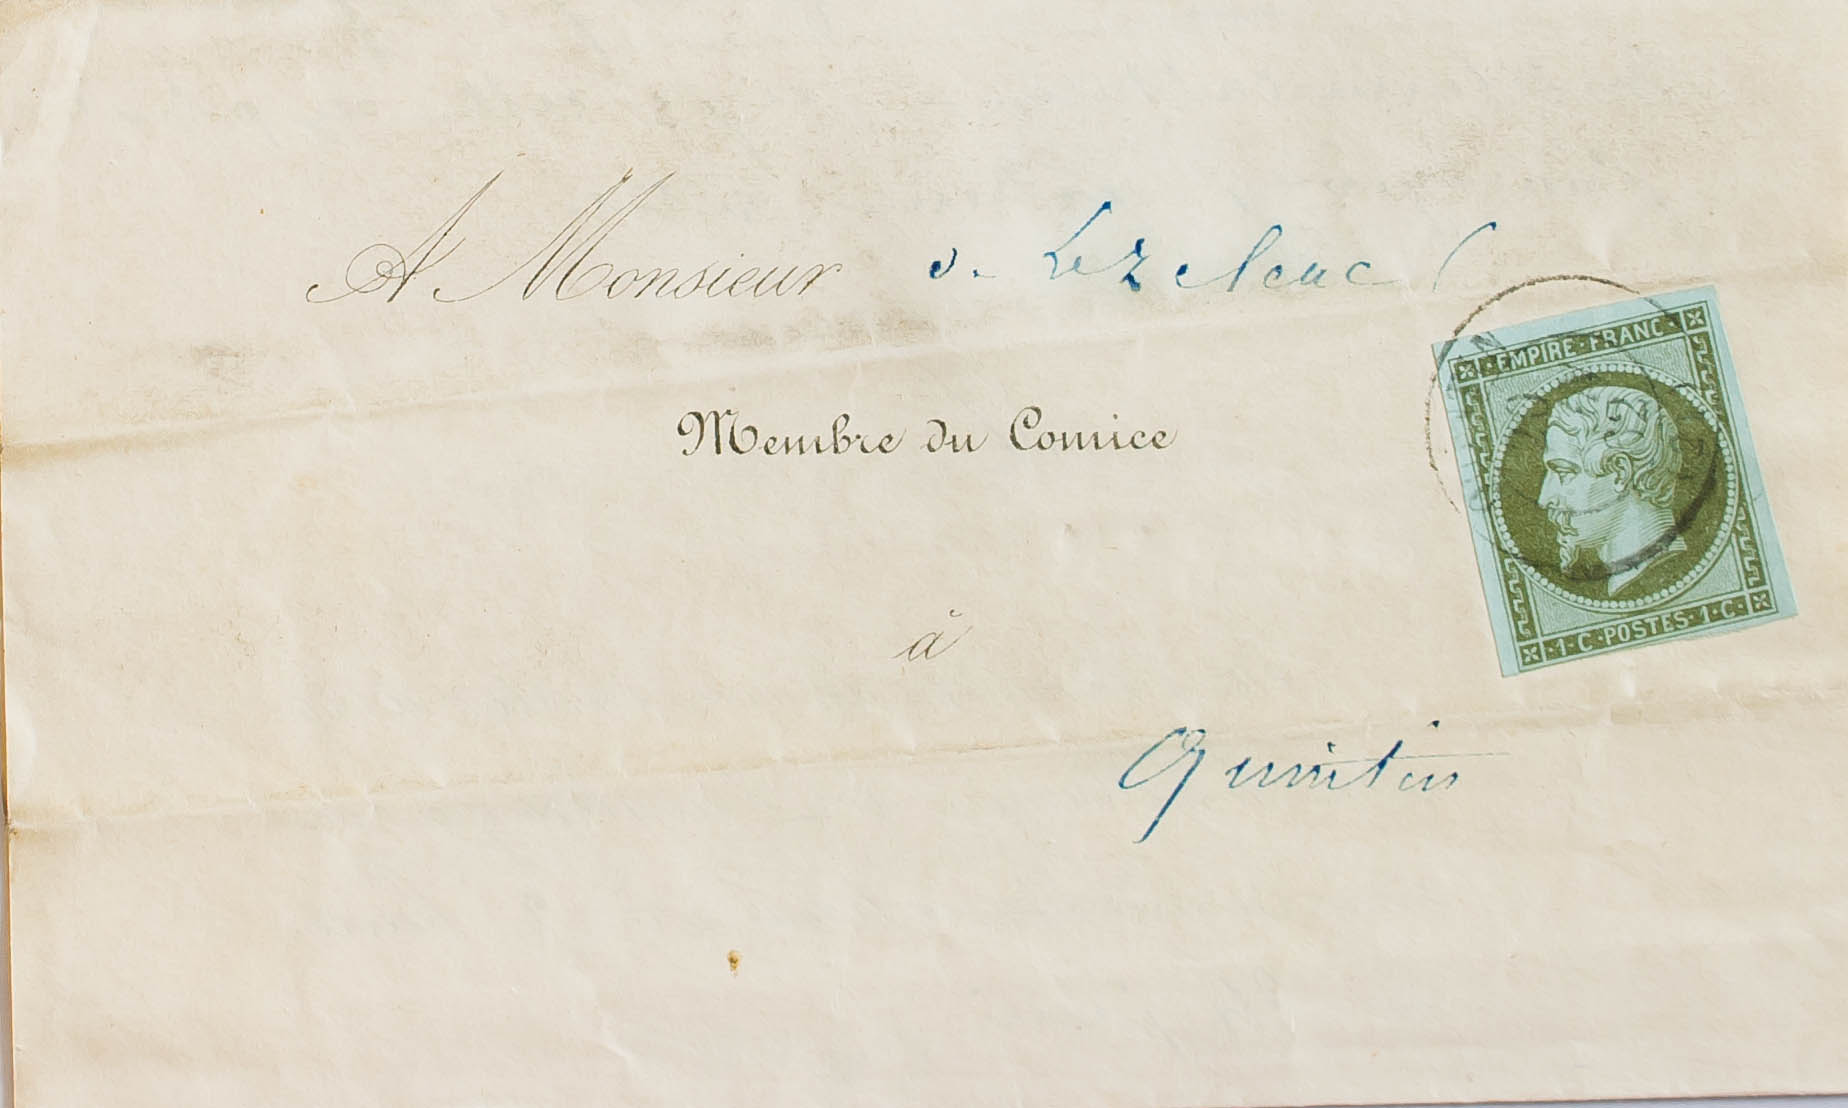 A Monsieur de Lezeleuc
EMPIRE · FRANC ·
Membre du Comice
à
· 1 · C · POSTES · 1 · C ·
Quintin